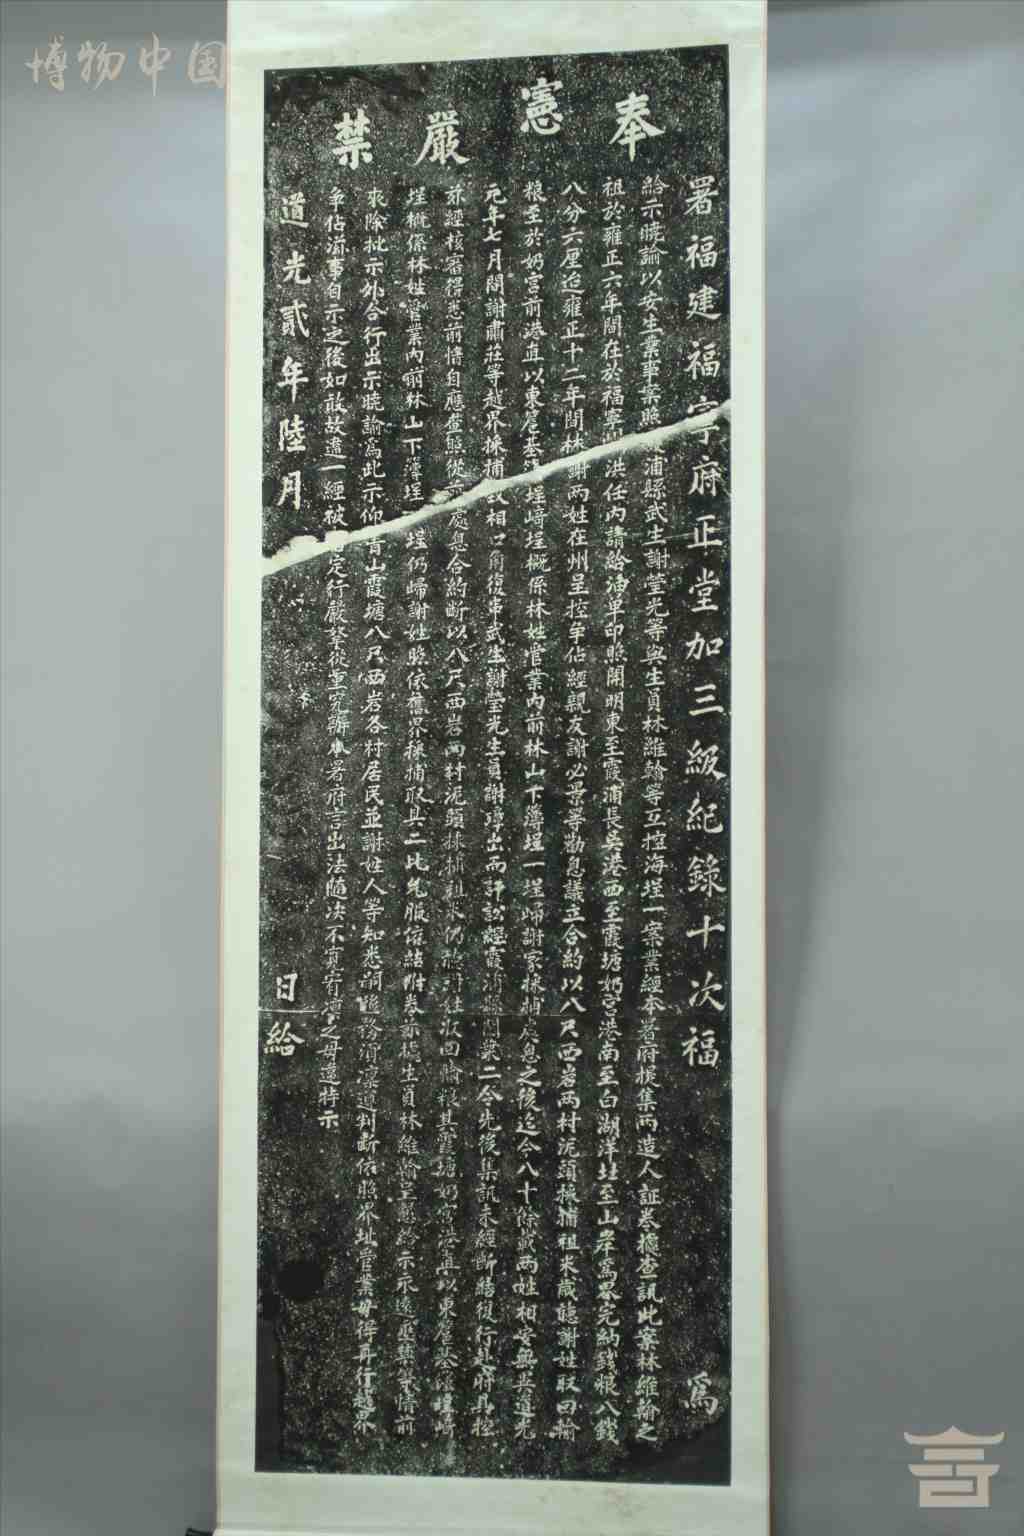 博物中国
奉憲嚴禁
署福建福寧府正堂加三級紀錄十次福 為
給示曉諭以安生業事案照 浦縣武生謝瑩光等與生員林維翰等互控海埕一案業經本署府提集兩造人証卷據查訊此案林維翰之
祖於雍正六年間在於福寧州洪任內請給 單印照開明東至霞浦長吳港西至霞塘奶宮港南至白湖洋北至山岸為界完納錢糧八錢
八分六厘迨雍正十二年間林謝兩姓在州呈控争佔經親友謝必景等勸息議立合約以八尺西岩兩村泥頭採捕租米歲聽謝姓收回輸
糧至於奶宮前港直以東 基 埕﨑埕概係林姓管業內前林山下薄埕一埕歸謝家採捕處息之後迄今八十餘載兩姓相安無異道光
元年七月間謝肅莊等越界採捕 相口角復串武生謝瑩光生員謝 出而評訟經霞浦縣 二令先後集訊未經斷結復行赴府具控
茲經核審得悉前情自應 從 處息合約斷以八尺西岩兩村泥頭採捕租米仍聽謝姓收回輸糧其霞塘奶宮港直以東 基 埕﨑
埕概係林姓管業內前林山下薄埕 埕仍歸謝姓照依舊界採捕取具二比允服依結附卷茲據生員林維翰呈懇給示永遠 禁等情前
來除批示外合行出示曉諭為此示仰青山霞塘八尺西岩各村居民並謝姓人等知悉嗣後務須凜遵判斷依照界址管業毋得再行越界
争佔滋事自示之後如敢故違一經被 定行嚴拏從重究辦本署府言出法隨决不寬宥凜之毋違特示
道光貳年陸月 日給